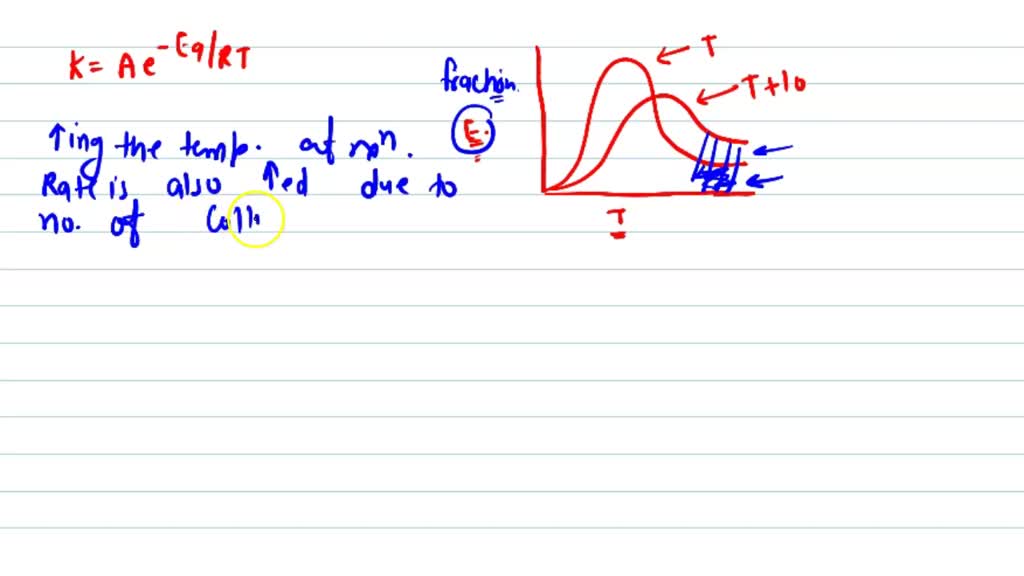 K = A e^-Ea/RT
fraction.
E.
T
T+10
↑ing the temp. of rxn.
Rate is also ↑ed due to
no. of Colli
T